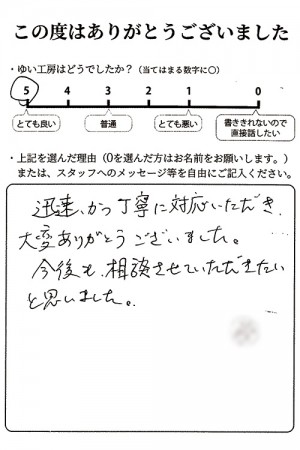 この度はありがとうございました
・ゆい工房はどうでしたか？（当てはまる数字に○）
5 4 3 2 1 0
とても良い 普通 とても悪い 書ききれないので直接話したい
・上記を選んだ理由（0を選んだ方はお名前をお願いします。）
または、スタッフへのメッセージ等を自由にご記入ください。
迅速、かつ丁寧に対応いただき、
大変ありがとうございました。
今後も、相談させていただきたい
と思いました。